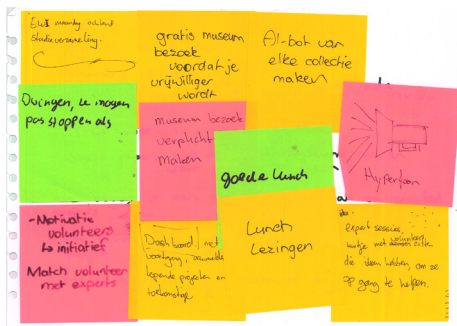 Elke maandag ochtend
studieverzameling.
gratis museum
bezoek
voordat je
vrijwilliger
wordt
AI-bot van
elke collectie
maken
Dwingen, ze mogen
pas stoppen als
museum bezoek
verplicht
maken
goede lunch
Hyperfoon
-Motivatie
volunteers
↳ initiatief
Match volunteer
met experts
Dashboard met
voortgang,
lopende projecten en
toekomstige
Lunch
Lezingen
expert sessie,
volunteers
die
op gang te helpen.